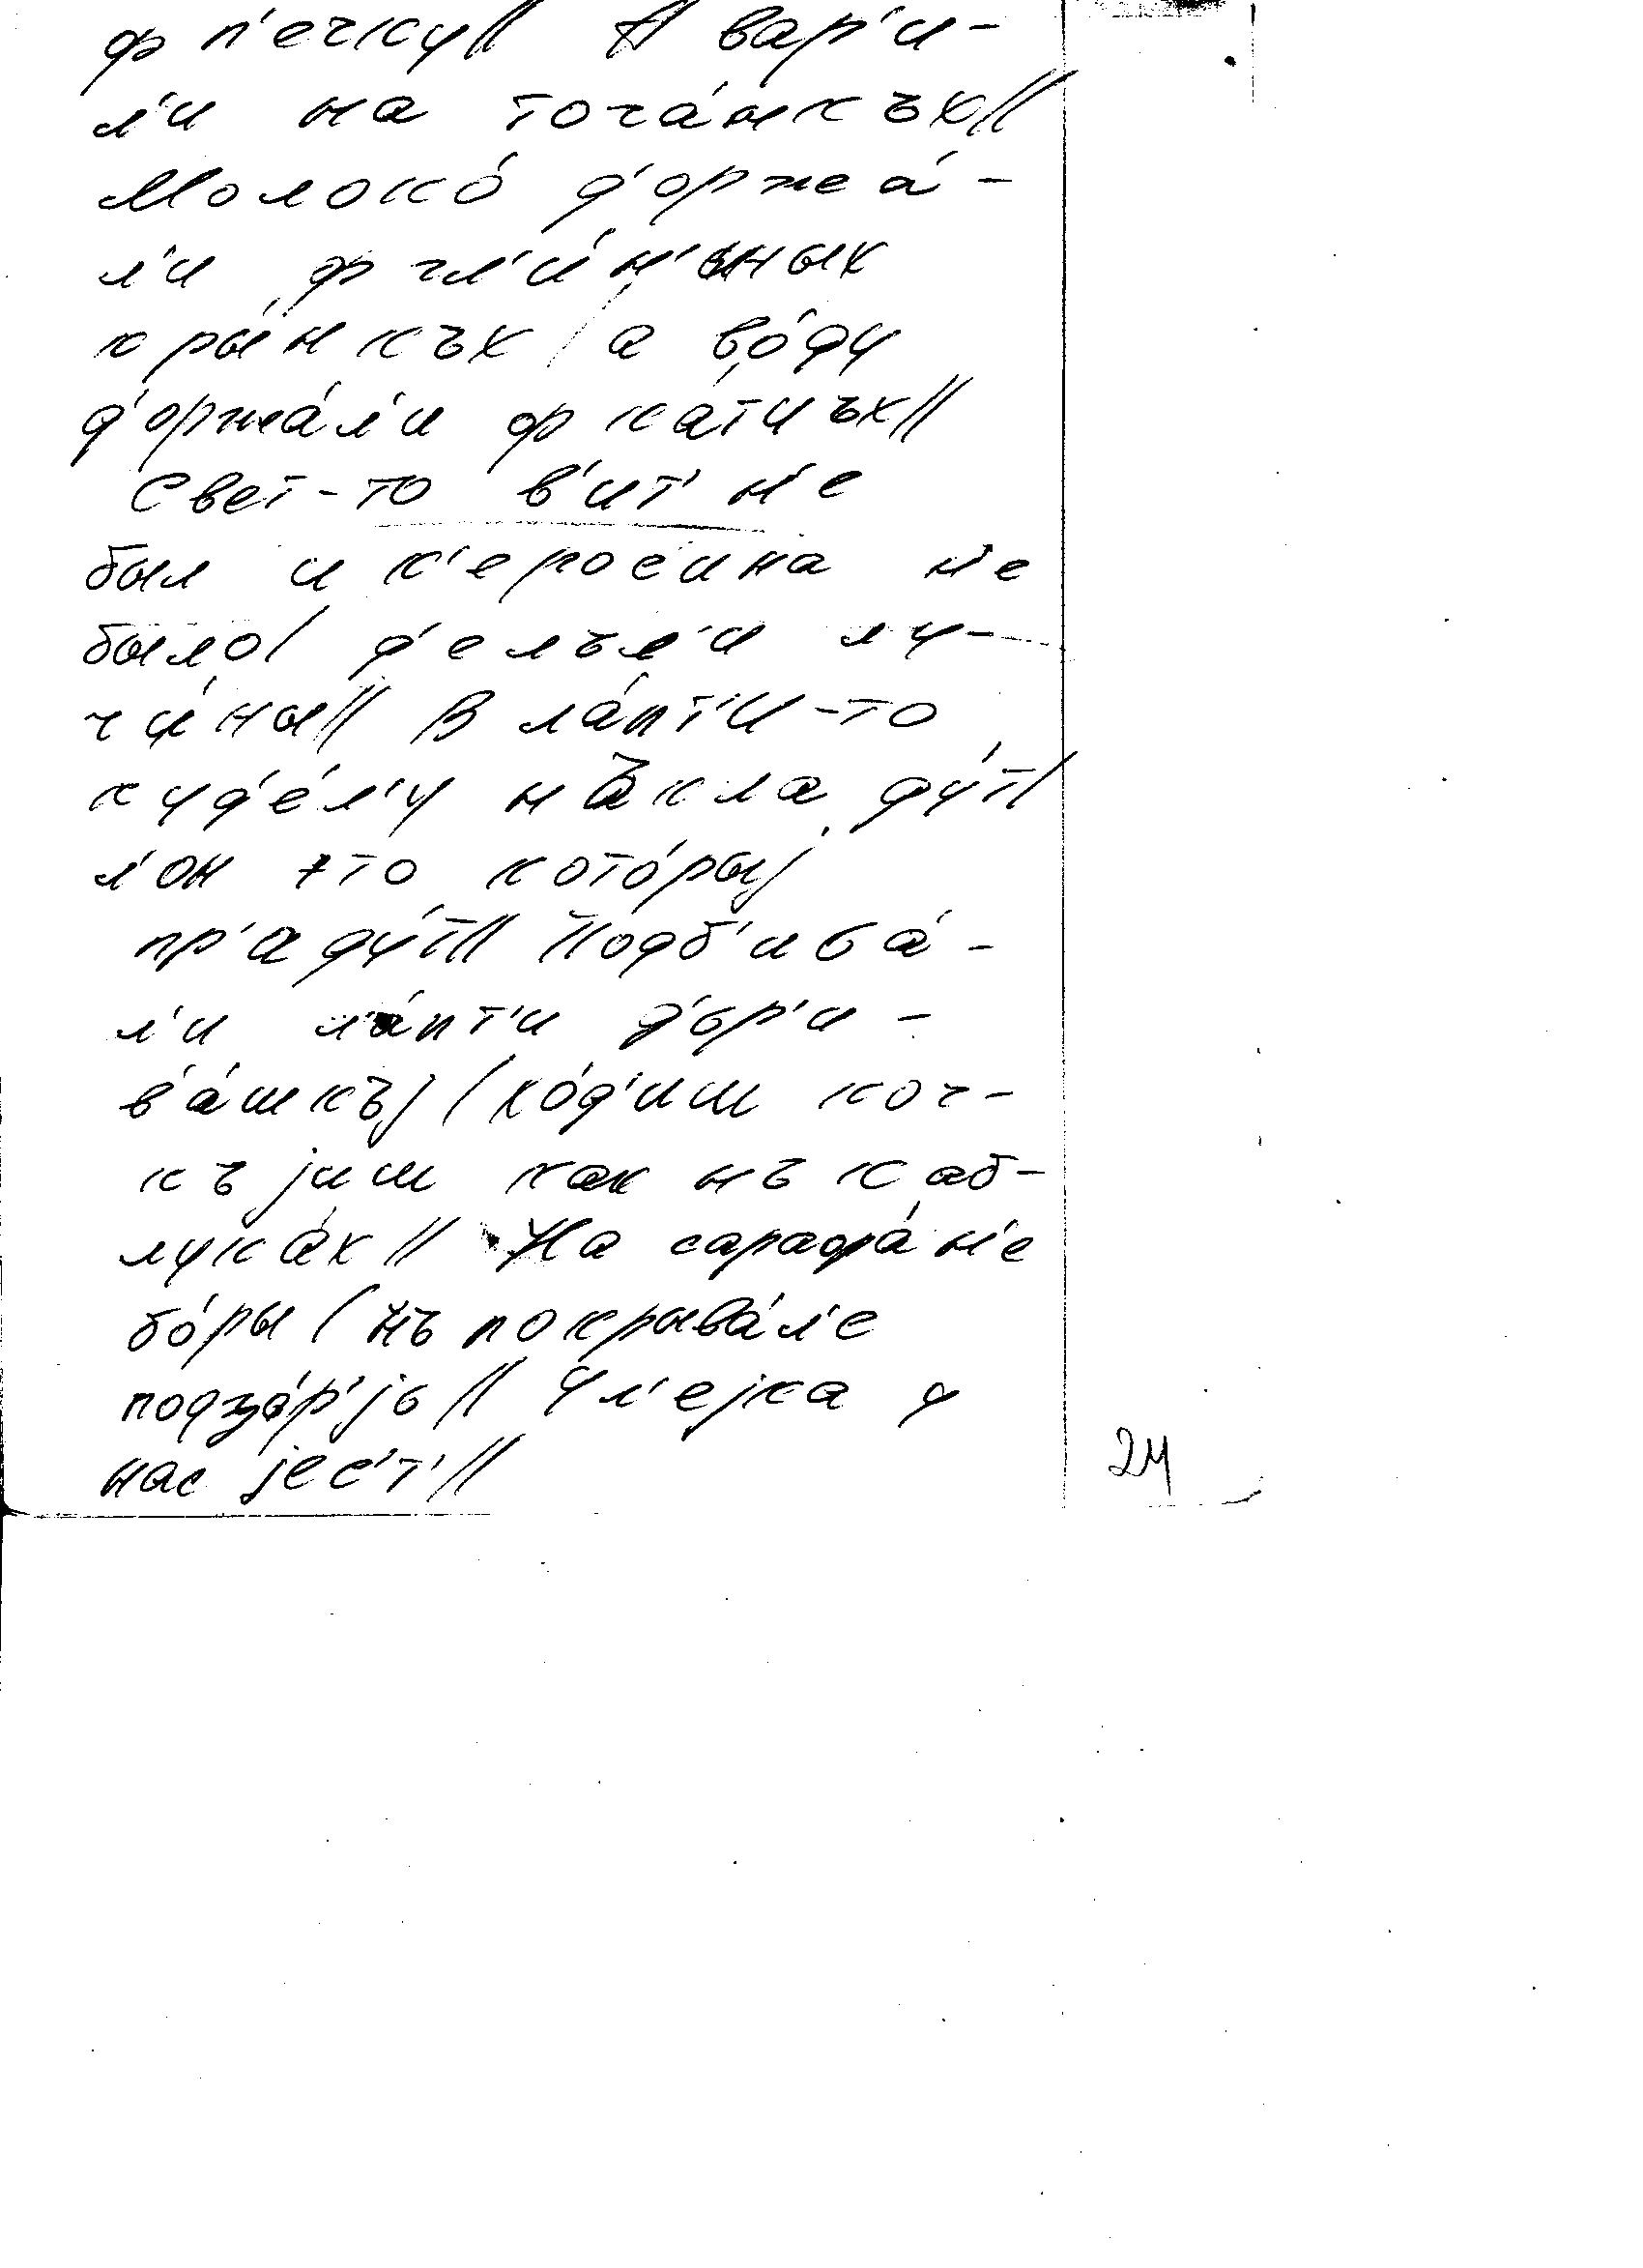 ф п'ечку// А вар'и-
л'и на тога́нкъх//
Молоко́ д'оржа́-
л'и ф гл'и́н'ьных
кры́нкъх / а во́ду
д'оржа́л'и ф ка́тцъх//
Свет-то в'ит' н'е
был и к'еросина н'е
было/ д'елъл'и лу-
чи́ны// В ла́пт'и-то
куд'е́л'у нъкла ду́т/
л'он это кото́рыj
пр'аду́т// Подб'ива́-
л'и ла́пт'и д'ьр'и-
в'а́шкъj / хо́д'иш ког-
къ jиш как нъ каб-
лука́х// На сарафа́н'е
бо́ры / нъ покрыва́л'е
подзо́р'jь// Ул'еjка у
нас jес'т'//
24